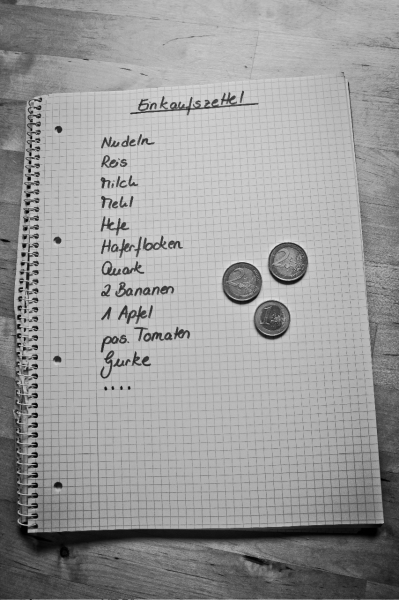 Einkaufszettel
Nudeln
Reis
Milch
Mehl
Hefe
Haferflocken
Quark
2 Bananen
1 Apfel
pas. Tomaten
Gurke
....
2
2
1